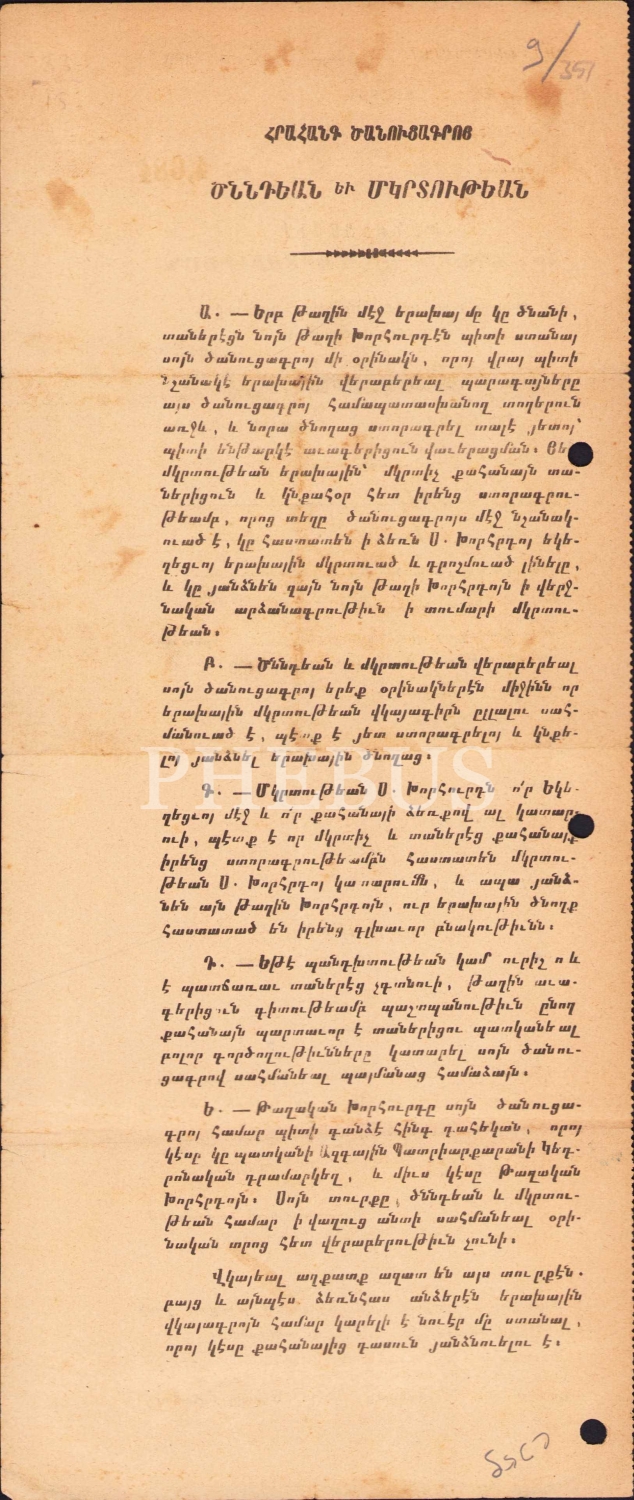 9/351
ՀՐԱՀԱՆԳ ԾԱՆՈՒՑԱԳՐՈՑ
ԾՆՆԴԵԱՆ ԵՒ ՄԿՐՏՈՒԹԵԱՆ
Ա. — Երբ Թաղին մէջ երախայ մը կը ծնանի,
տաներէցն նոյն Թաղի Խորհուրդէն պիտի ստանայ
սոյն ծանուցագրոյ մի օրինակն, որոյ վրայ պիտի
նշանակէ երախային վերաբերեալ պարագայները
այս ծանուցագրոյ համապատասխանող տողերուն
առջև, և նորա ծնողաց ստորագրել տալէ յետոյ՝
պիտի ենթարկէ աւագերիցուն վաւերացման։
մկրտութեան երախային՝ մկրտիչ քահանայն տա-
ներիցուն և կնքահօր հետ իրենց ստորագրու-
թեամբ, որոց տեղը ծանուցագրոյս մէջ նշանակ-
ուած է, կը հաստատեն ի ձեռն Ս. Խորհրդոյ եկե-
ղեցւոյ երախային մկրտուած և դրոշմուած լինելը,
և կը յանձնեն զայն նոյն թաղի Խորհրդոյն ի վերջ-
նական արձանագրութիւն ի տումարի մկրտու-
թեան։
Բ. — Ծննդեան և մկրտութեան վերաբերեալ
սոյն ծանուցագրոյ երեք օրինակներէն միջինն որ
երախային մկրտութեան վկայագիրն ըլլալու սահ-
մանուած է, պէտք է յետ ստորագրելոյ և կնքե-
լոյ յանձնել երախային ծնողաց։
PHEBUS
Գ. — Մկրտութեան Ս. Խորհուրդն ո՛ր Եկե-
ղեցւոյ մէջ և ո՛ր քահանայի ձեռքով ալ կատար-
ուի, պէտք է որ մկրտիչ և տաներէց քահանայք
իրենց ստորագրութեամբն հաստատեն մկրտու-
թեան Ս. Խորհրդոյ կատարումն, և ապա յանձ-
նեն այն Թաղին Խորհրդոյն, ուր երախային ծնողք
հաստատած են իրենց գլխաւոր բնակութիւնն։
Դ. — Եթէ պանդխտութեան կամ ուրիշ ո և
է պատճառաւ տաներէց չգտնուի, Թաղին աւա-
գերիցուն գիտութեամբ պաշտպանութիւն ընող
քահանայն պարտաւոր է տաներիցու պատկանեալ
բոլոր գործողութիւնները կատարել սոյն ծանու-
ցագրով սահմանեալ պայմանաց համաձայն։
Ե. — Թաղական Խորհուրդը սոյն ծանուցա-
գրոյ համար պիտի գանձէ հինգ դահեկան, որոյ
կէսը կը պատկանի Ազգային Պատրիարքարանի Կեդ-
րոնական դրամարկեղ, և միւս կէսը Թաղական
Խորհրդոյն։ Սոյն տուրքը, ծննդեան և մկրտու-
թեան համար ի վաղուց անտի սահմանեալ օրի-
նական տրոց հետ վերաբերութիւն չունի։
Վկայեալ աղքատք ազատ են այս տուրքէն.
բայց և այնպէս ձեռնհաս անձերէն երախային
վկայագրոյն համար կարելի է նուէր մը ստանալ,
որոյ կէսը քահանայից դասուն յանձնուելու է։